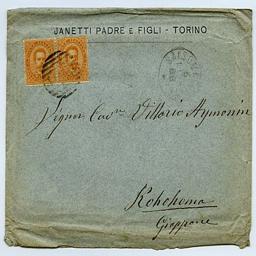 JANETTI PADRE E FIGLI - TORINO
Signor Cavr Vittorio Aymonin
Kohohama
Giappone